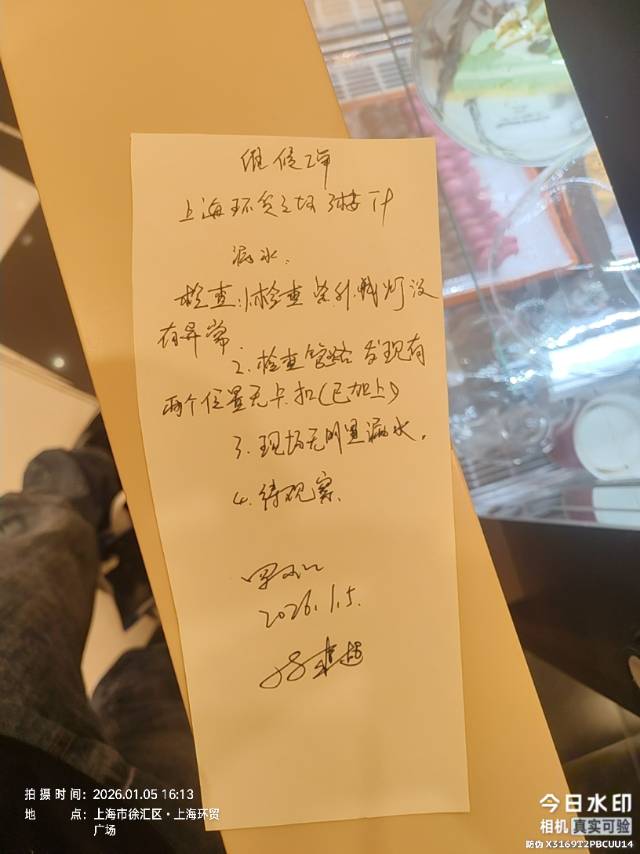 维修单
上海环贸广场
漏水.
检查:1.检查紫外线灯没
有异常.
2.检查管路发现有
两个位置无卡扣(已加上)
3.现场无明显漏水.
4.待观察.
2026.1.5.
拍摄时间:2026.01.05 16:13
地点:上海市徐汇区·上海环贸
广场
今日水印
相机 真实可验
防伪 X3169T2PBCUU14